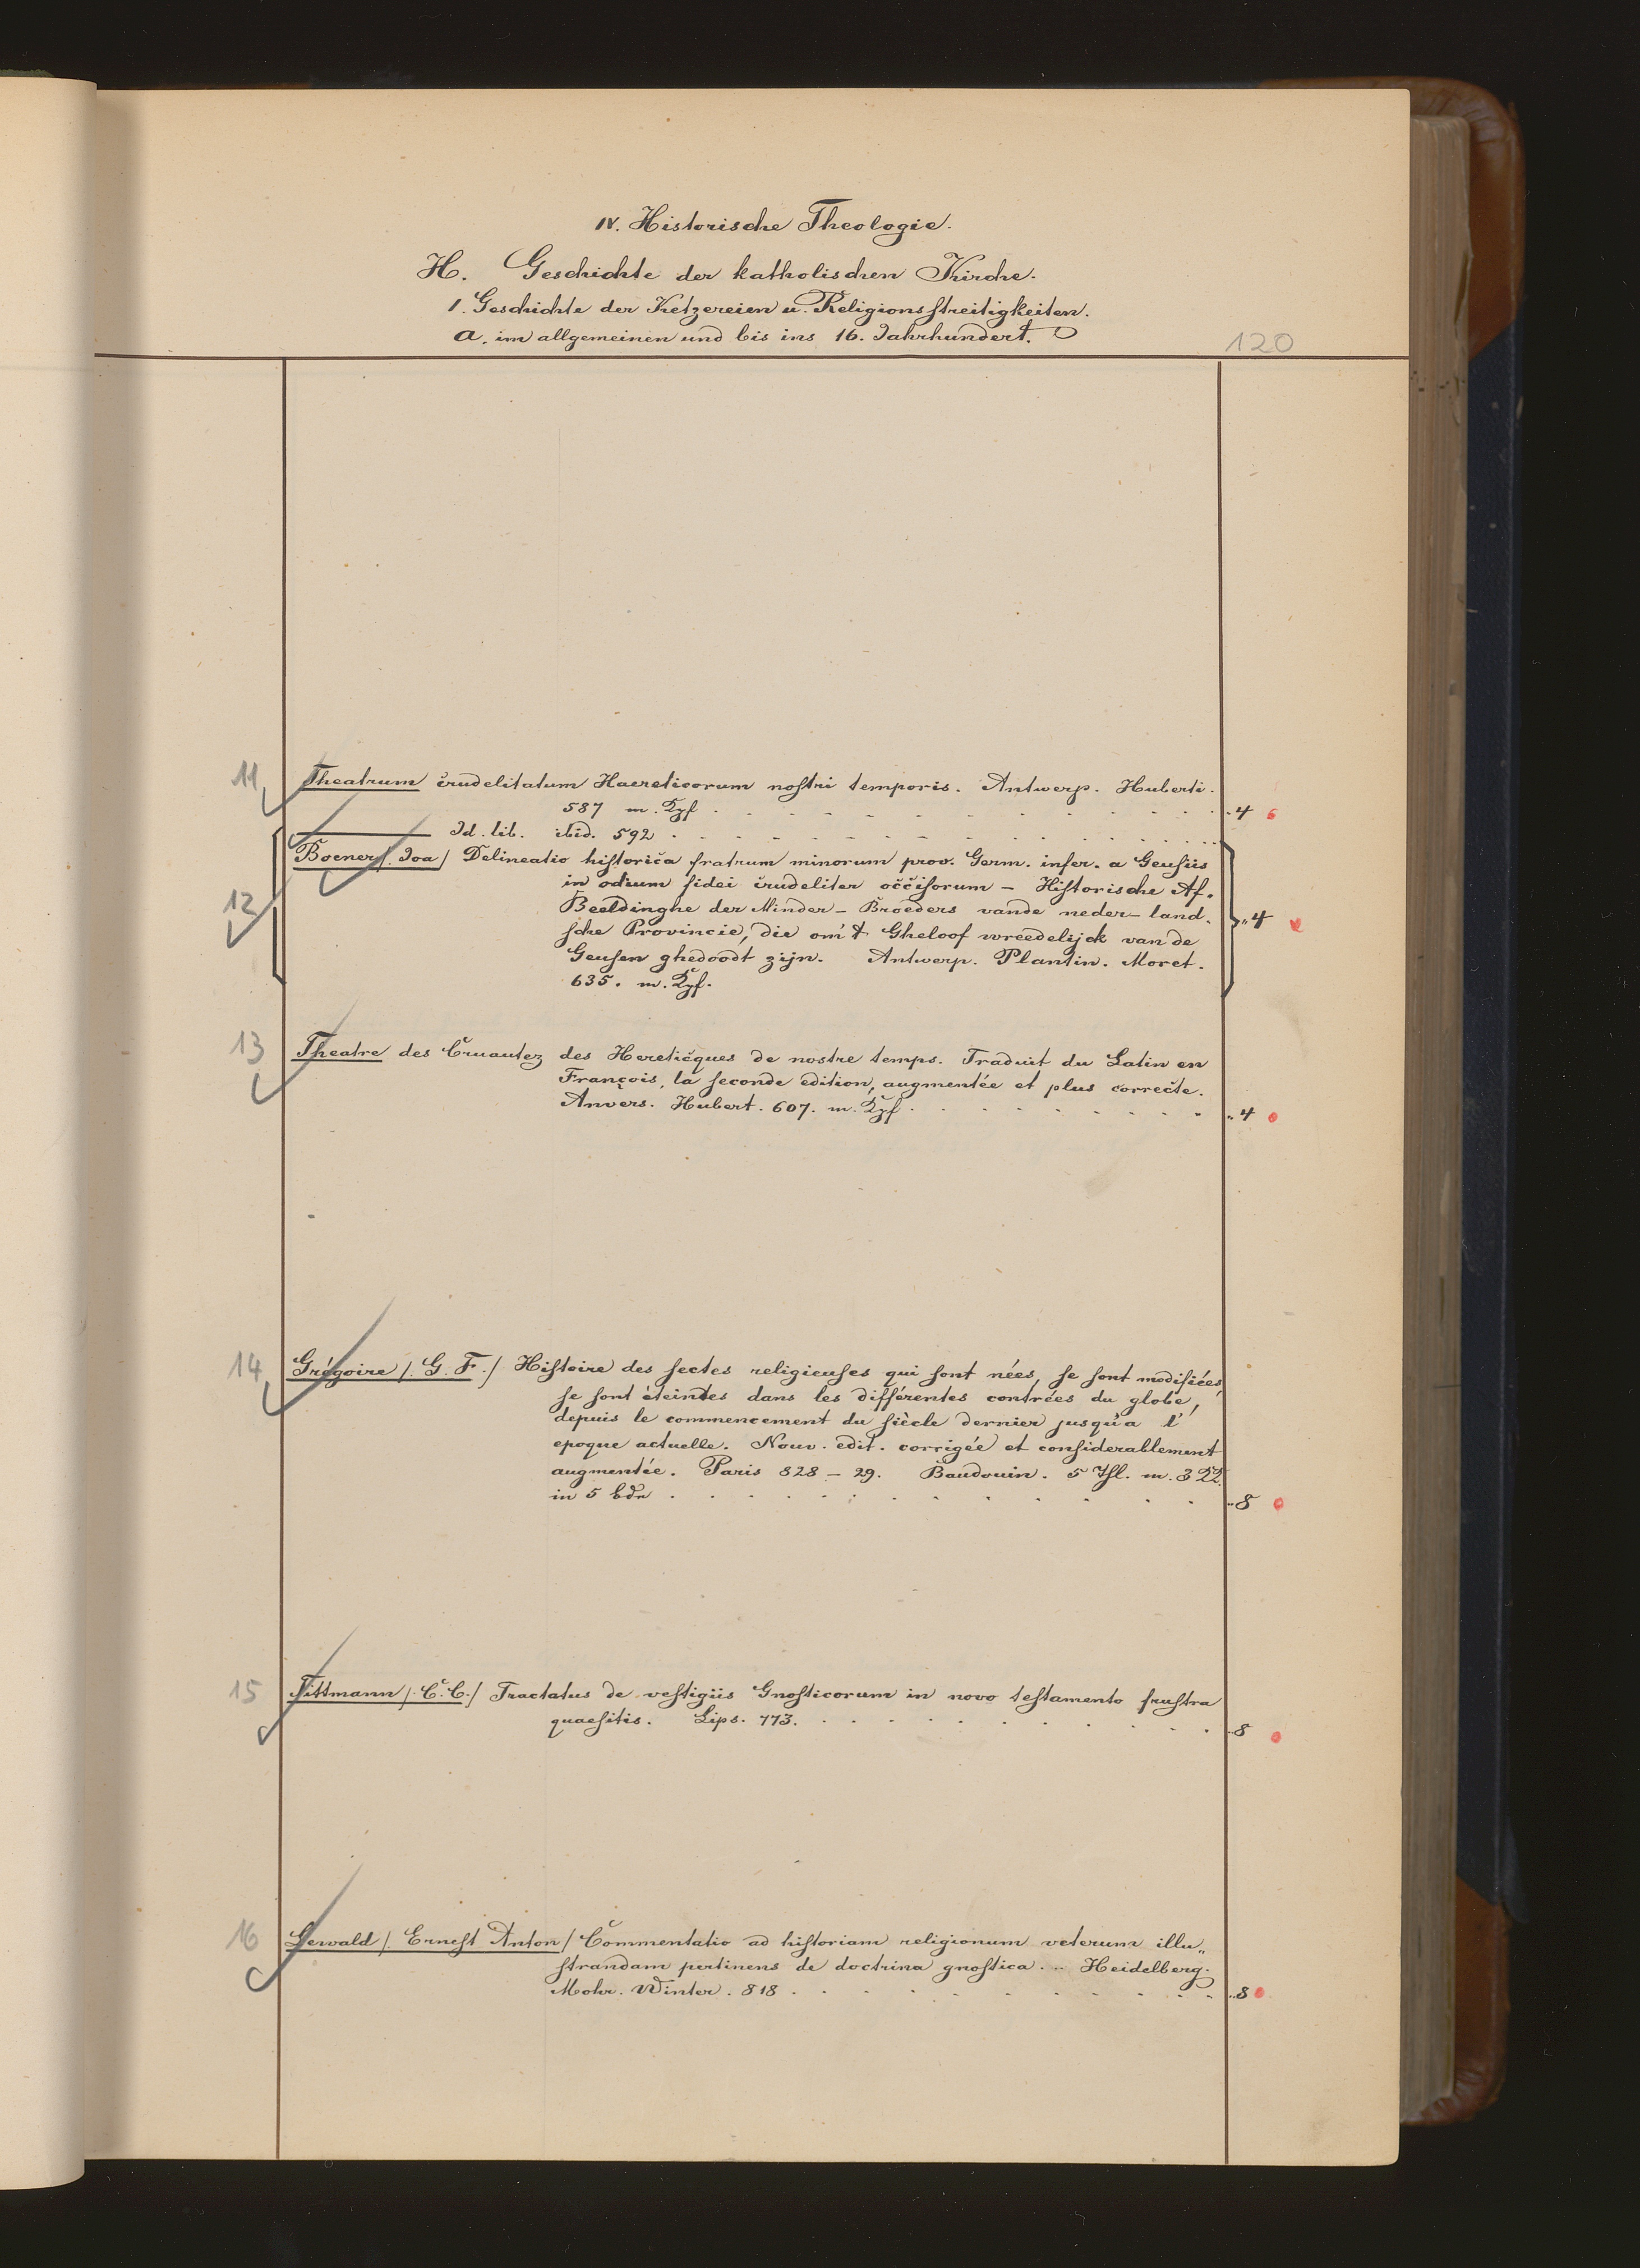 IV. Historische Theologie.
H. Geschichte der katholischen Kirche.
1. Geschichte der Ketzereien u. Religionsstreitigkeiten.
a. im allgemeinen und bis ins 16. Jahrhundert.
120
11 Theatrum crudelitatum Haereticorum nostri temporis. Antwerp. Huberti.
587 m. Kpf . . . . 4
Id. lib. ibid. 592 . . . .
12 Boener /. Joa / Delineatio historica fratrum minorum prov. Germ. infer. a Geusiis
in odium fidei crudeliter occisorum – Historische Af-
Beeldinghe der Minder-Broeders vande neder-land-
sche Provincie, die om't Gheloof wreedelijck van de
Geusen ghedoodt zijn. Antwerp. Plantin. Moret. 4
635. m. Kpf.
13 Theatre des Cruautez des Hereticques de nostre temps. Traduit du Latin en
François, la seconde edition, augmentée et plus correcte.
Anvers. Hubert. 607. m. Kpf . . . . 4
14 Grégoire /. G. F./ Histoire des sectes religieuses qui sont nées, se sont modifiées,
se sont éteintes dans les différentes contrées du globe,
depuis le commencement du siècle dernier jusqu'a l'
epoque actuelle. Nouv. edit. corrigée et considerablement
augmentée. Paris 828 – 29. Baudouin. 5 Thl. m. 3
in 5 bdn . . . . 8
15 Tittmann /. C. C./ Tractatus de vestigiis Gnosticorum in novo testamento frustra
quaesitis. Lips. 773. . . . 8
16 Lewald /. Ernest Anton / Commentatio ad historiam religionum veterum illu„
strandam pertinens de doctrina gnostica. .. Heidelberg.
Mohr. Winter. 818 . . . . 8